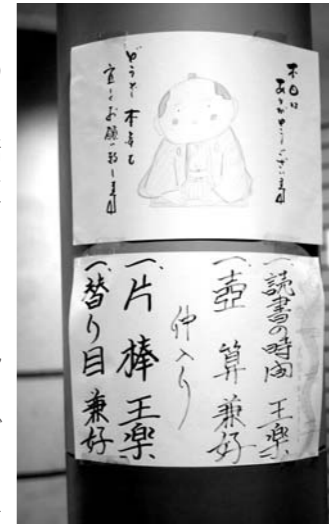 本日は
ありがとうございます
どうぞ 本年も
宜しくお願い致します
一、読書の時間 王楽
一、壺算 兼好
仲入り
一、片棒 王楽
一、替り目 兼好